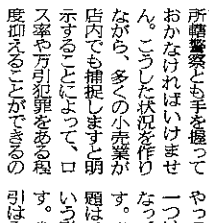 所轄警察とも手を握って
おかなければいけませ
ん。こうした状況を作り
ながら、多くの小売業が
店内でも捕捉しますと明
示することによって、ロ
ス率や万引犯罪をある程
度抑えることができるの
やっ
なっ
す。
題は
いう
す。
引は